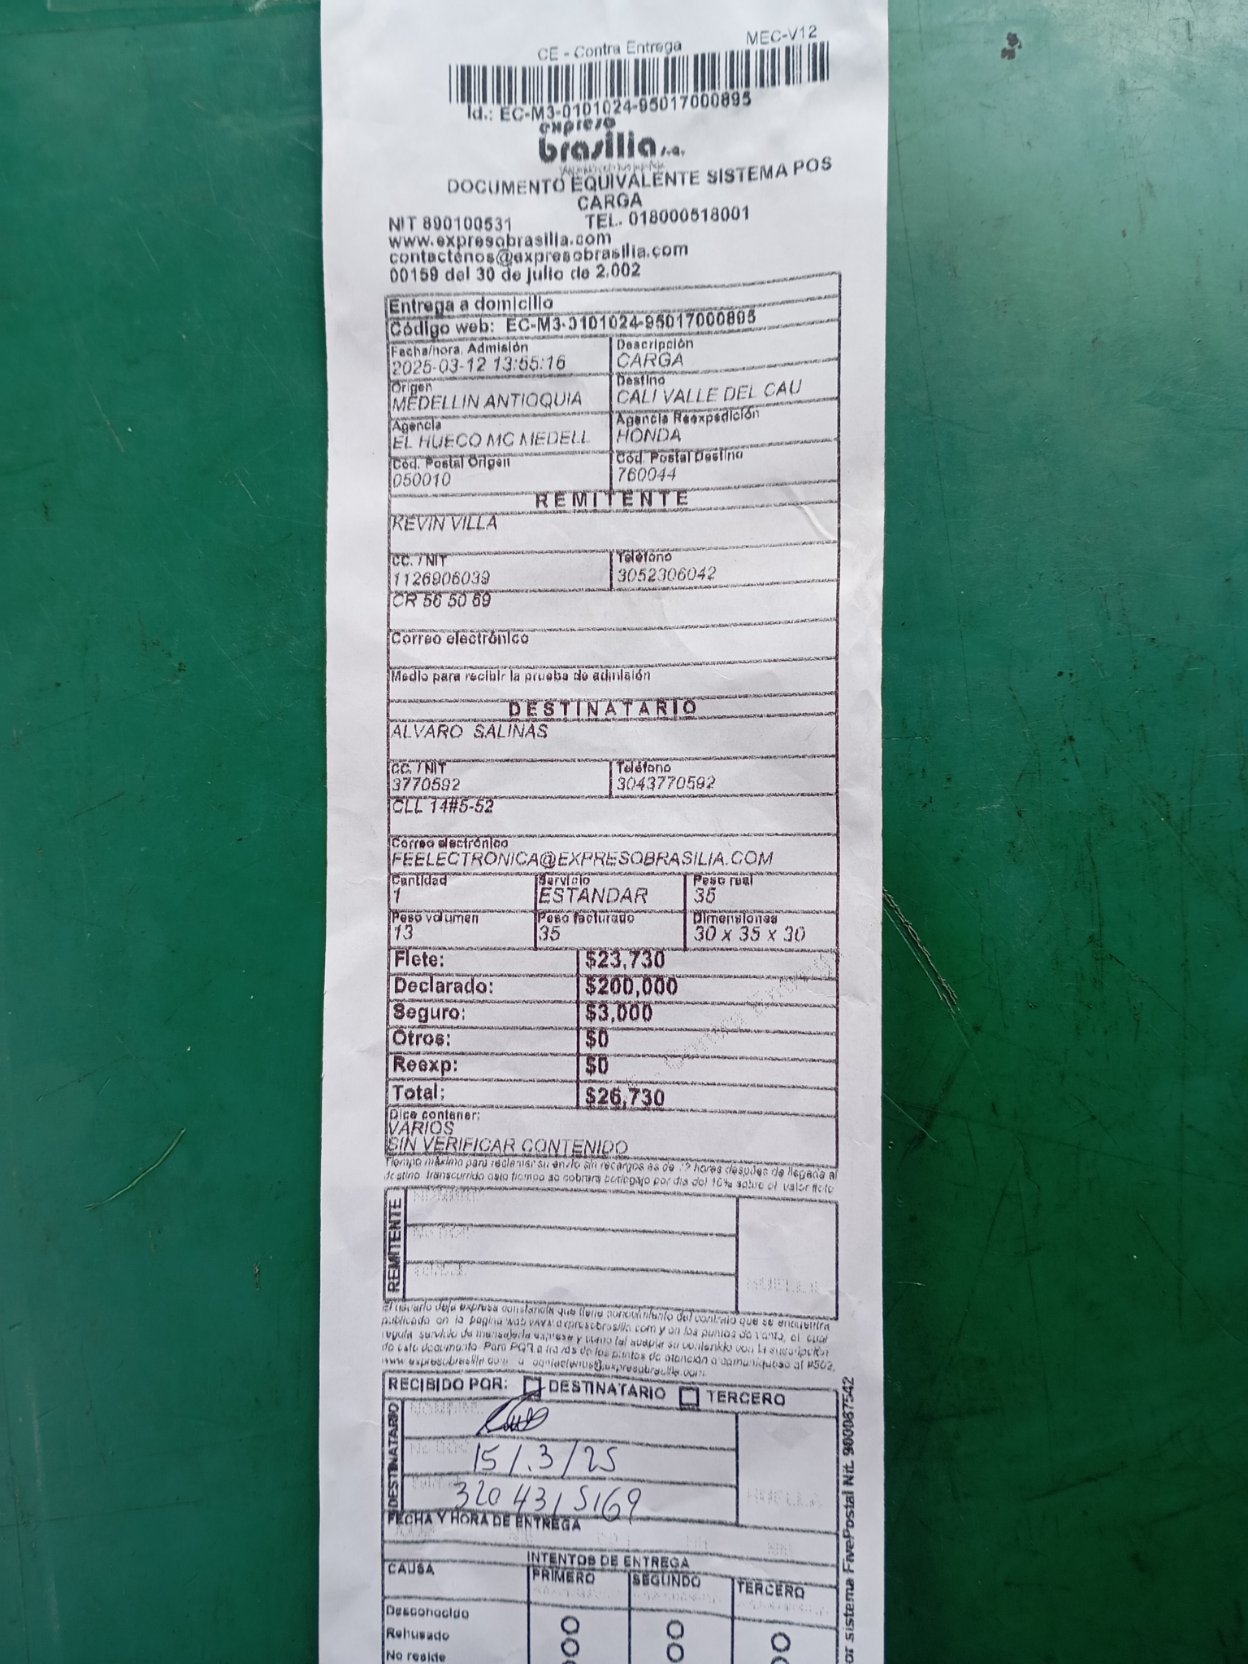 CE - Contra Entrega MEC-V12
Id.: EC-M3-0101024-95017000895
expreso
brasilia s.a.
DOCUMENTO EQUIVALENTE SISTEMA POS
CARGA
NIT 890100531 TEL. 018000518001
www.expresobrasilia.com
contactenos@expresobrasilia.com
00159 del 30 de julio de 2.002
Entrega a domicilio
Código web: EC-M3-0101024-95017000895
Fecha/hora. Admisión Descripción
2025-03-12 13:55:16 CARGA
Origen Destino
MEDELLIN ANTIOQUIA CALI VALLE DEL CAU
Agencia Agencia Reexpedición
EL HUECO MC MEDELL HONDA
Cód. Postal Origen Cód. Postal Destino
050010 760044
REMITENTE
KEVIN VILLA
CC. / NIT Teléfono
1126906039 3052306042
CR 56 50 69
Correo electrónico
Medio para recibir la prueba de admisión
DESTINATARIO
ALVARO SALINAS
CC. / NIT Teléfono
3770592 3043770592
CLL 14#5-52
Correo electrónico
FEELECTRONICA@EXPRESOBRASILIA.COM
Cantidad Servicio Peso real
1 ESTANDAR 35
Peso volumen Peso facturado Dimensiones
13 35 30 x 35 x 30
Flete: $23,730
Declarado: $200,000
Seguro: $3,000
Otros: $0
Reexp: $0
Total: $26,730
Dice contener:
VARIOS
SIN VERIFICAR CONTENIDO
Tiempo máximo para reclamar su envío sin recargos es de 72 horas después de llegada al
destino transcurrido este tiempo se cobrara bodegaje por día del 10% sobre el valor flete
REMITENTE
HUELLA
El usuario deja expresa constancia que tiene conocimiento del contrato que se encuentra
publicado en la pagina web www.expresobrasilia.com y en los puntos de venta, el cual
regula servicio de mensajería expresa y como tal acepta su contenido con la suscripción
de este documento. Para PQR a través de los puntos de atención o comuníquese al #502,
www.expresobrasilia.com o contactenos@expresobrasilia.com.
RECIBIDO POR: DESTINATARIO TERCERO
DESTINATARIO
15/.3/25
320 4315169
HUELLA
FECHA Y HORA DE ENTREGA
INTENTOS DE ENTREGA
CAUSA PRIMERO SEGUNDO TERCERO
Desconocido
Rehusado
No reside
or sistema FivePostal Nit. 900087542